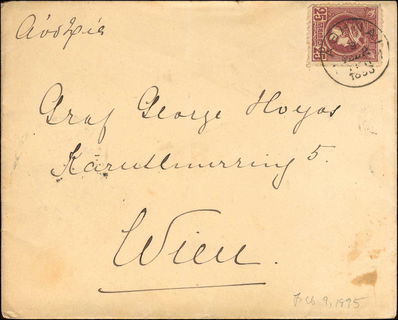 Αὐστρία
25 25
ΑΘΗΝΑΙ
Graf George Hoyos
Kärnthnerring 5.
Wien.
Feb. 9, 1895